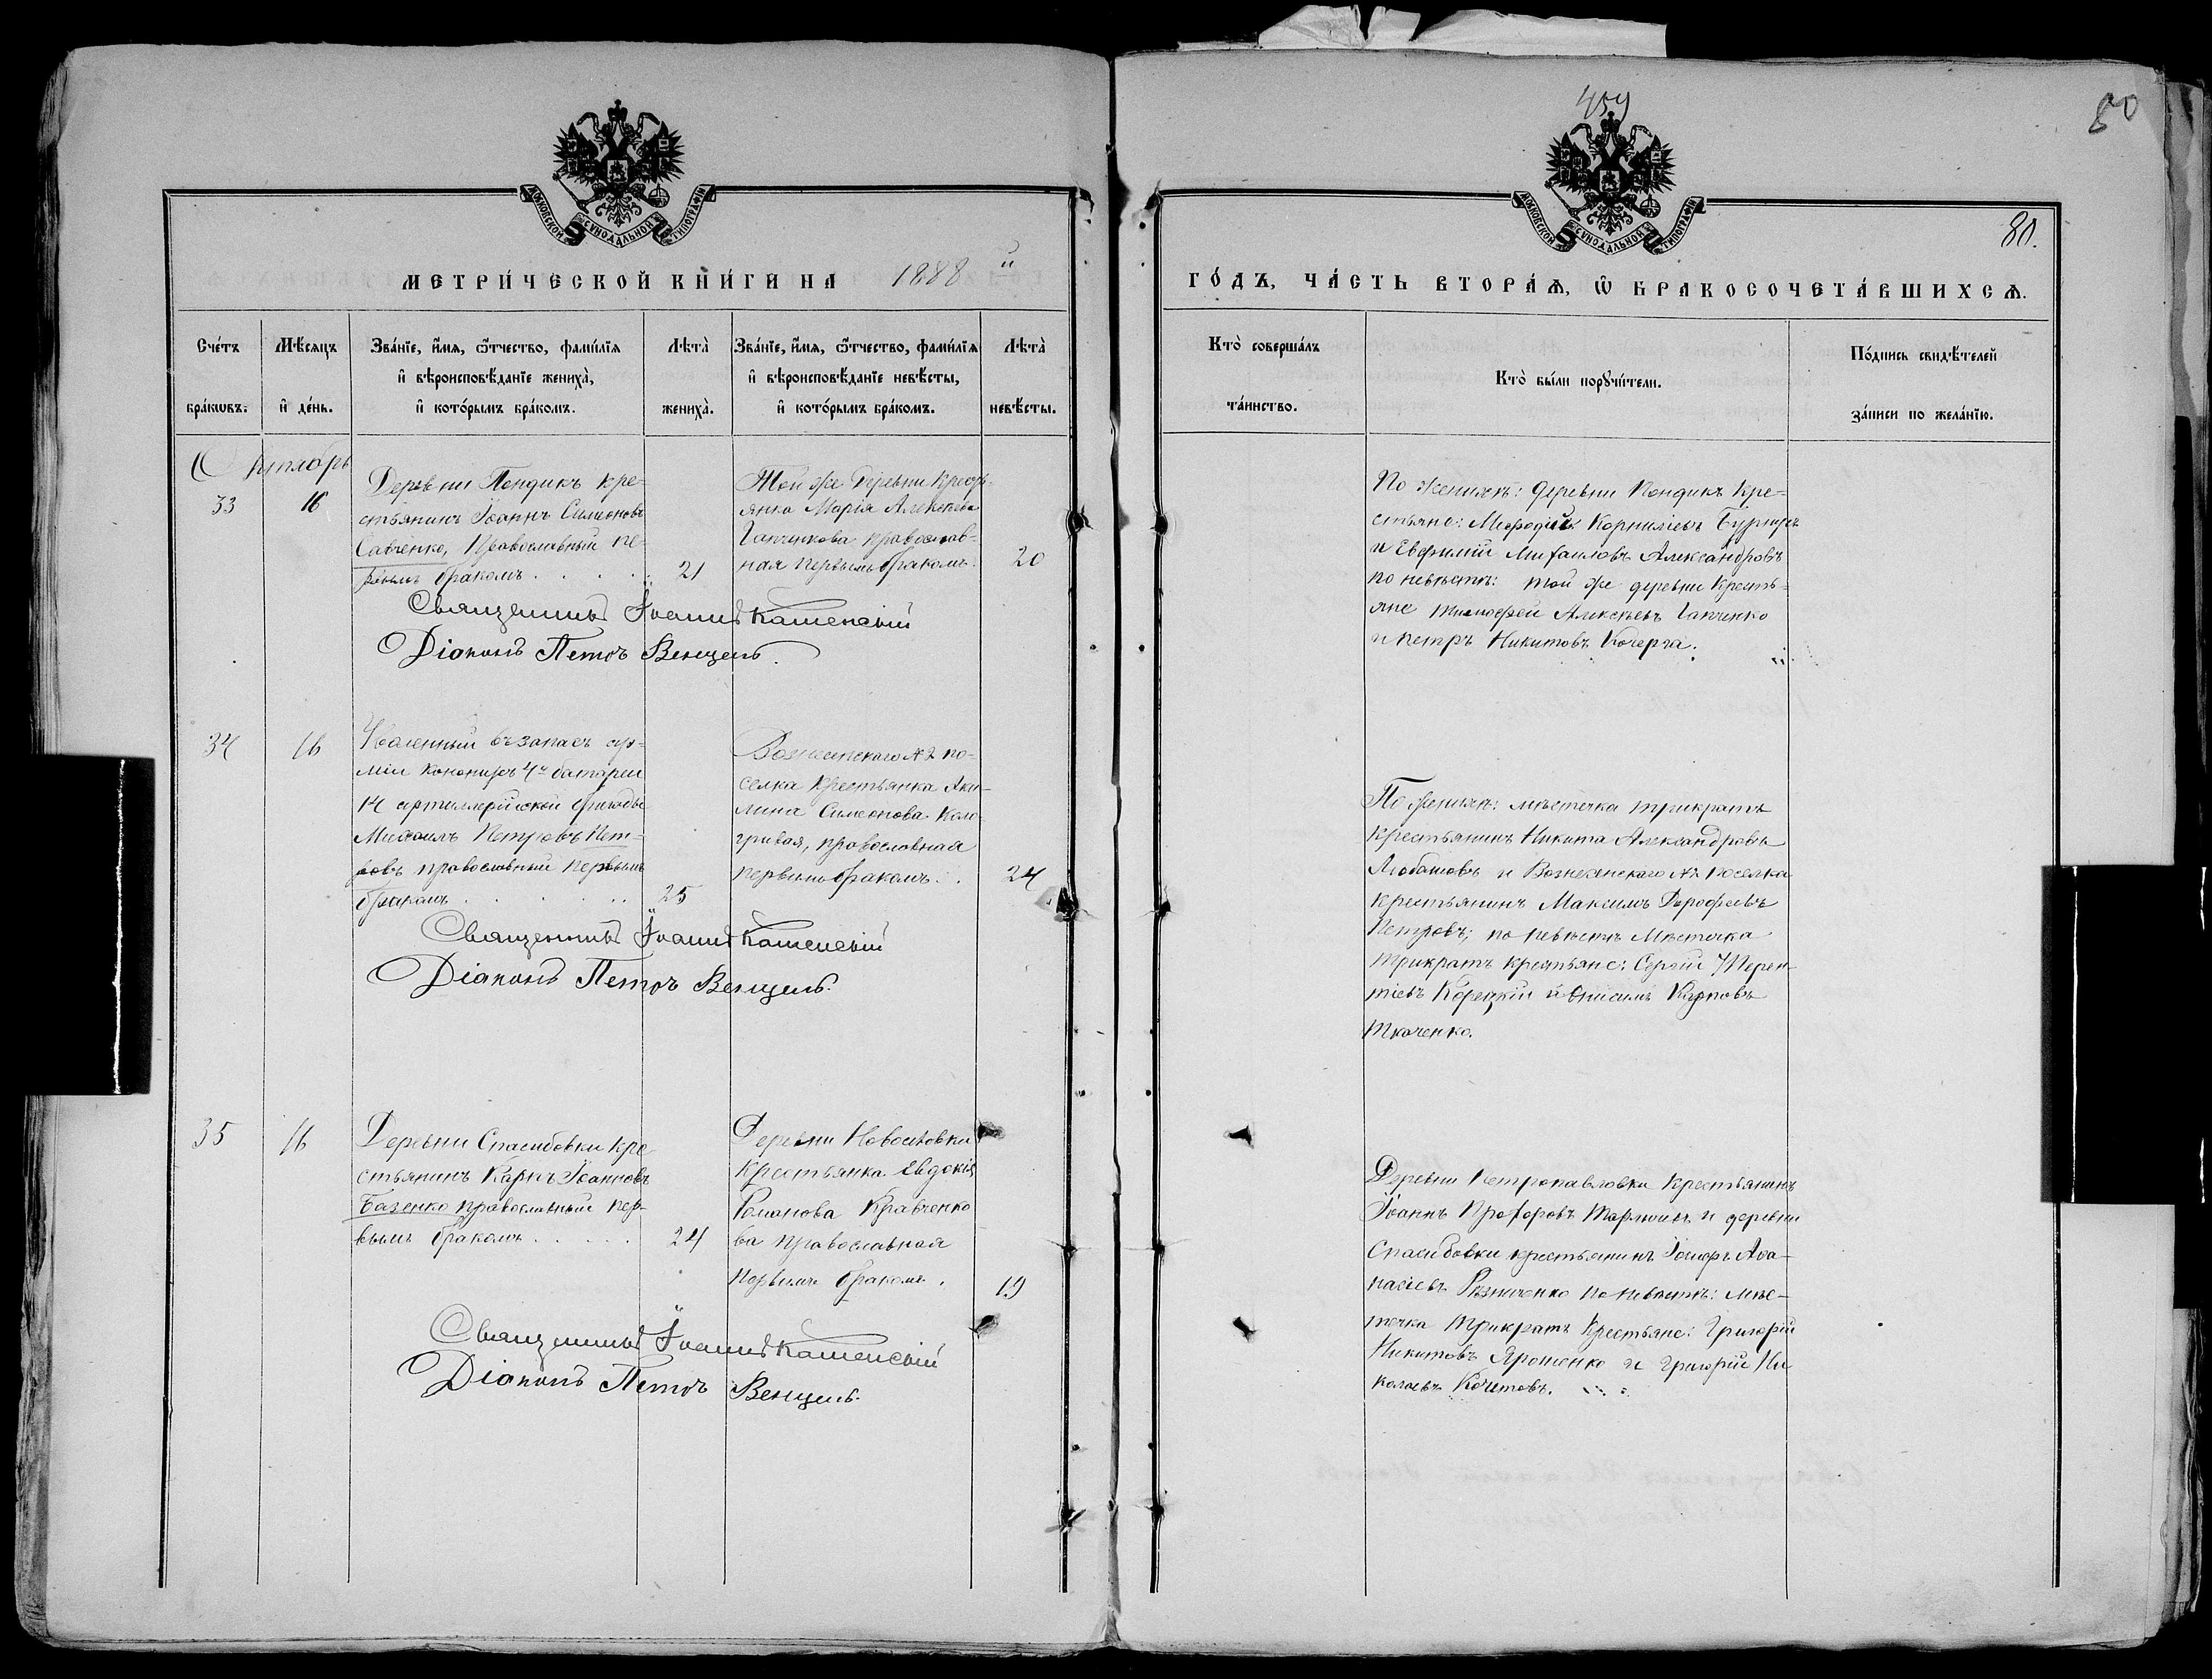 459
80
МОСКОВСКОЙ СѴНОДАЛЬНОЙ ТИПОГРАФІИ
МОСКОВСКОЙ СѴНОДАЛЬНОЙ ТИПОГРАФІИ
80.
МЕТРИ́ЧЕСКОЙ КНИ́ГИ НА 1888 й
ГО́ДЪ, ЧА́СТЬ ВТОРА́Ѧ, Ѡ҆ БРАКОСОЧЕТА́ВШИХСѦ.
Сче́тъ бра́кѡвъ.
Мѣ́сяцъ и҆ де́нь.
Зва́нїе, и҆́мя, ѻ҆́тчество, фами́лїя
и҆ вѣроисповѣ́данїе жениха̀,
и҆ кото́рымъ бра́комъ.
Лѣта̀ жениха̀.
Зва́нїе, и҆́мя, ѻ҆́тчество, фами́лїя
и҆ вѣроисповѣ́данїе невѣ́сты,
и҆ кото́рымъ бра́комъ.
Лѣта̀ невѣ́сты.
Кто̀ соверша́лъ
та́инство.
Кто̀ бы́ли порꙋчи́тели.
По́дпись свидѣ́телей
за́писи по жела́нїю.
Октябрь
33
16
Деревни Пондикъ кре-
стьянинъ Іоаннъ Симеоновъ
Савченко, Православный пе-
рвымъ бракомъ . . . .
21
Той же деревни кресть-
янка Марія Алексѣева
Гапченкова православ-
ная первымъ бракомъ.
20
Священникъ Іоаннъ Каменскій
Діаконъ Петръ Венцель.
По женихѣ: деревни Пондикъ Кре-
стьяне: Меѳодій Корниліевъ
и Евфимій Михаиловъ Александровъ
по невѣстѣ: той же деревни Кресть-
яне Тимоѳей Алексѣевъ Гапченко
и Петръ Никитовъ Кочерга.
34
16
Уволенный въ запасъ ар-
міи Канониръ 4й батареи
14 артиллерійской бригады
Михаилъ Петровъ Пет-
ровъ православный первымъ
бракомъ . . . . .
25
Вознесенскаго №2 по-
селка Крестьянка Аки-
лина Симеонова Коло-
гривая, православная
первымъ бракомъ . .
24
Священникъ Іоаннъ Каменскій
Діаконъ Петръ Венцель.
По женихѣ: мѣстечка Трикратъ
Крестьянинъ Никита Александровъ
Любашовъ и Вознесенскаго №2 поселка
Крестьянинъ Максимъ Дороѳеевъ
Петровъ; по невѣстѣ Мѣстечка
Трикратъ крестьяне: Сергій Терен-
тіевъ Корецкій и Онисимъ Карповъ
Ткаченко.
35
16
Деревни Спасибовки Кре
стьянинъ Карпъ Іоанновъ
Базенко православный пер-
вымъ бракомъ . . . . .
24
Деревни Новоселовки
Крестьянка Евдокія
Романова Кравченко
ва православная
первымъ бракомъ .
19
Священникъ Іоаннъ Каменскій
Діаконъ Петръ Венцель.
Деревни Петропавловки Крестьянинъ
Іоаннъ Прохоровъ и деревни
Спасибовки крестьянинъ Іосифъ Аѳа-
насіевъ Рѣзниченко по невѣстѣ: мѣс-
течка Трикратъ Крестьяне: Григорій
Никитовъ Ярошенко и Григорій Ни
колаевъ Кочетовъ.